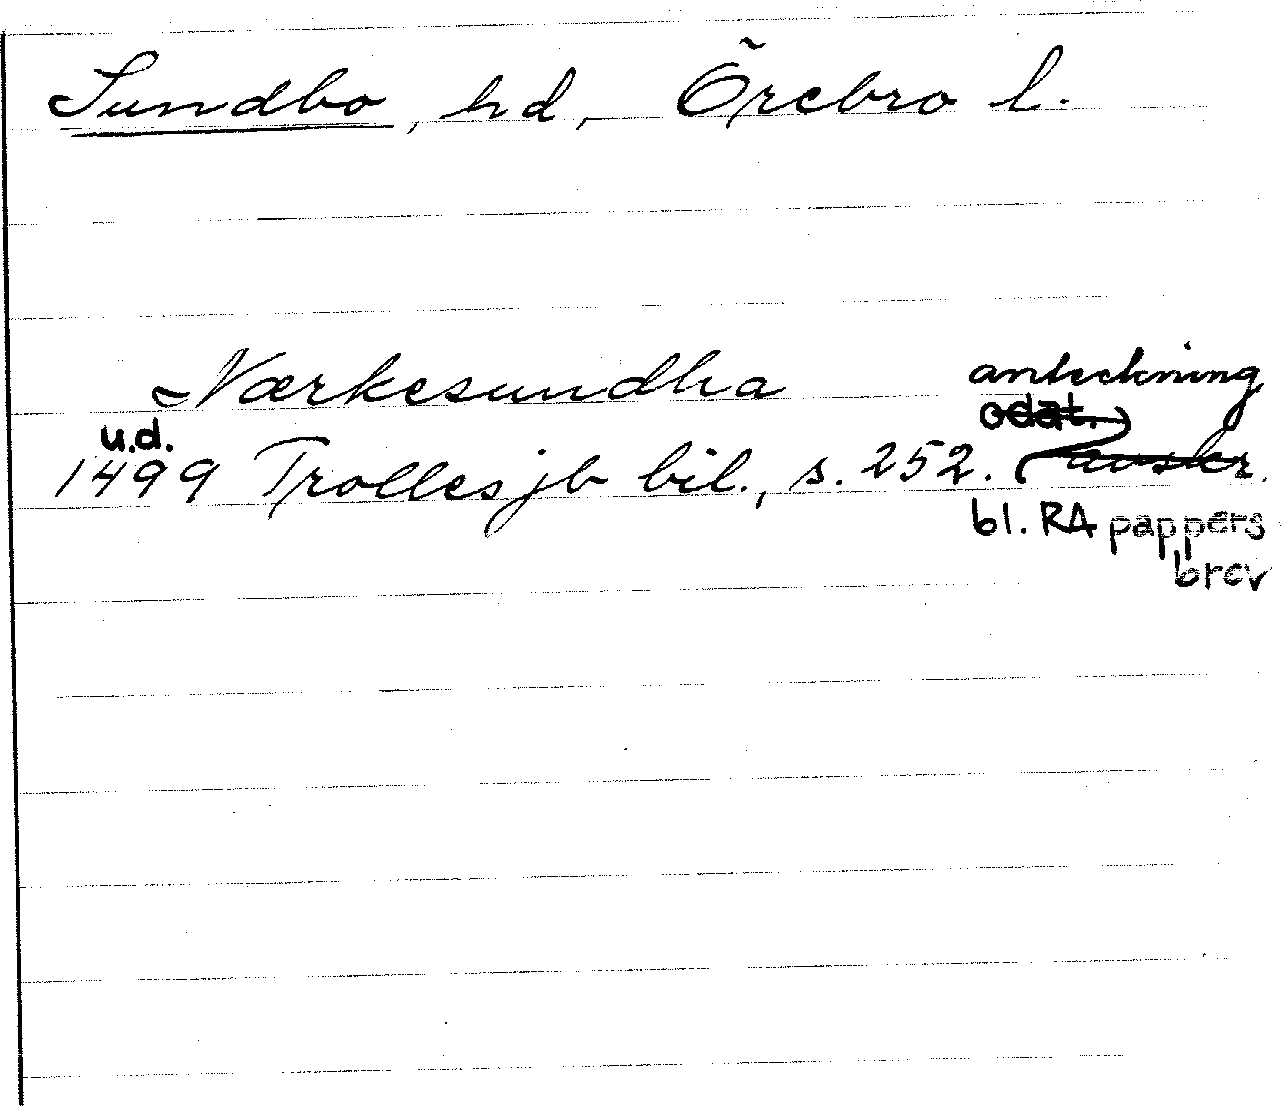 Sundbo, hd, Örebro l.
Nærkesundha anteckning
u.d. odat.
1499 Trolles jb bil., s. 252. (avskr.
bl. RA pappers
brev